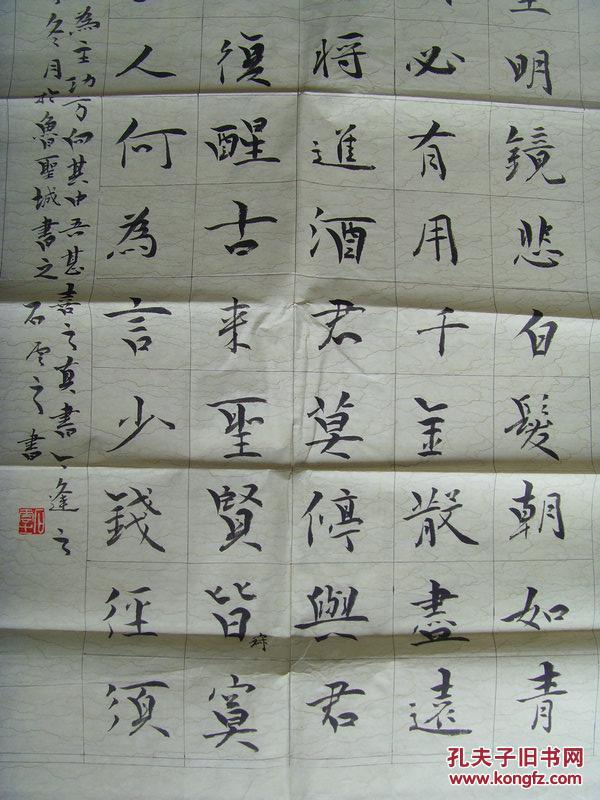 明鏡悲白髮朝如青
必有用千金散盡遠
將進酒君莫停與君
復醒古來聖賢皆寞
人何為言少錢徑須
為主功方向其中吾甚嘉之真書
冬月於魯聖城書之 石雲之書
孔夫子旧书网
www.kongfz.com